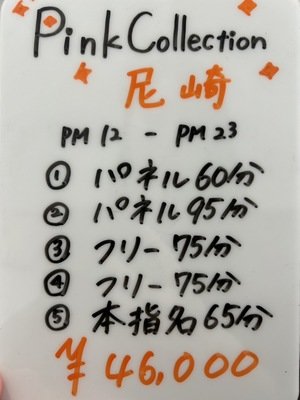 Pink Collection
尼崎
PM 12 - PM 23
① パネル 60分
② パネル 95分
③ フリー 75分
④ フリー 75分
⑤ 本指名 65分
¥ 46,000